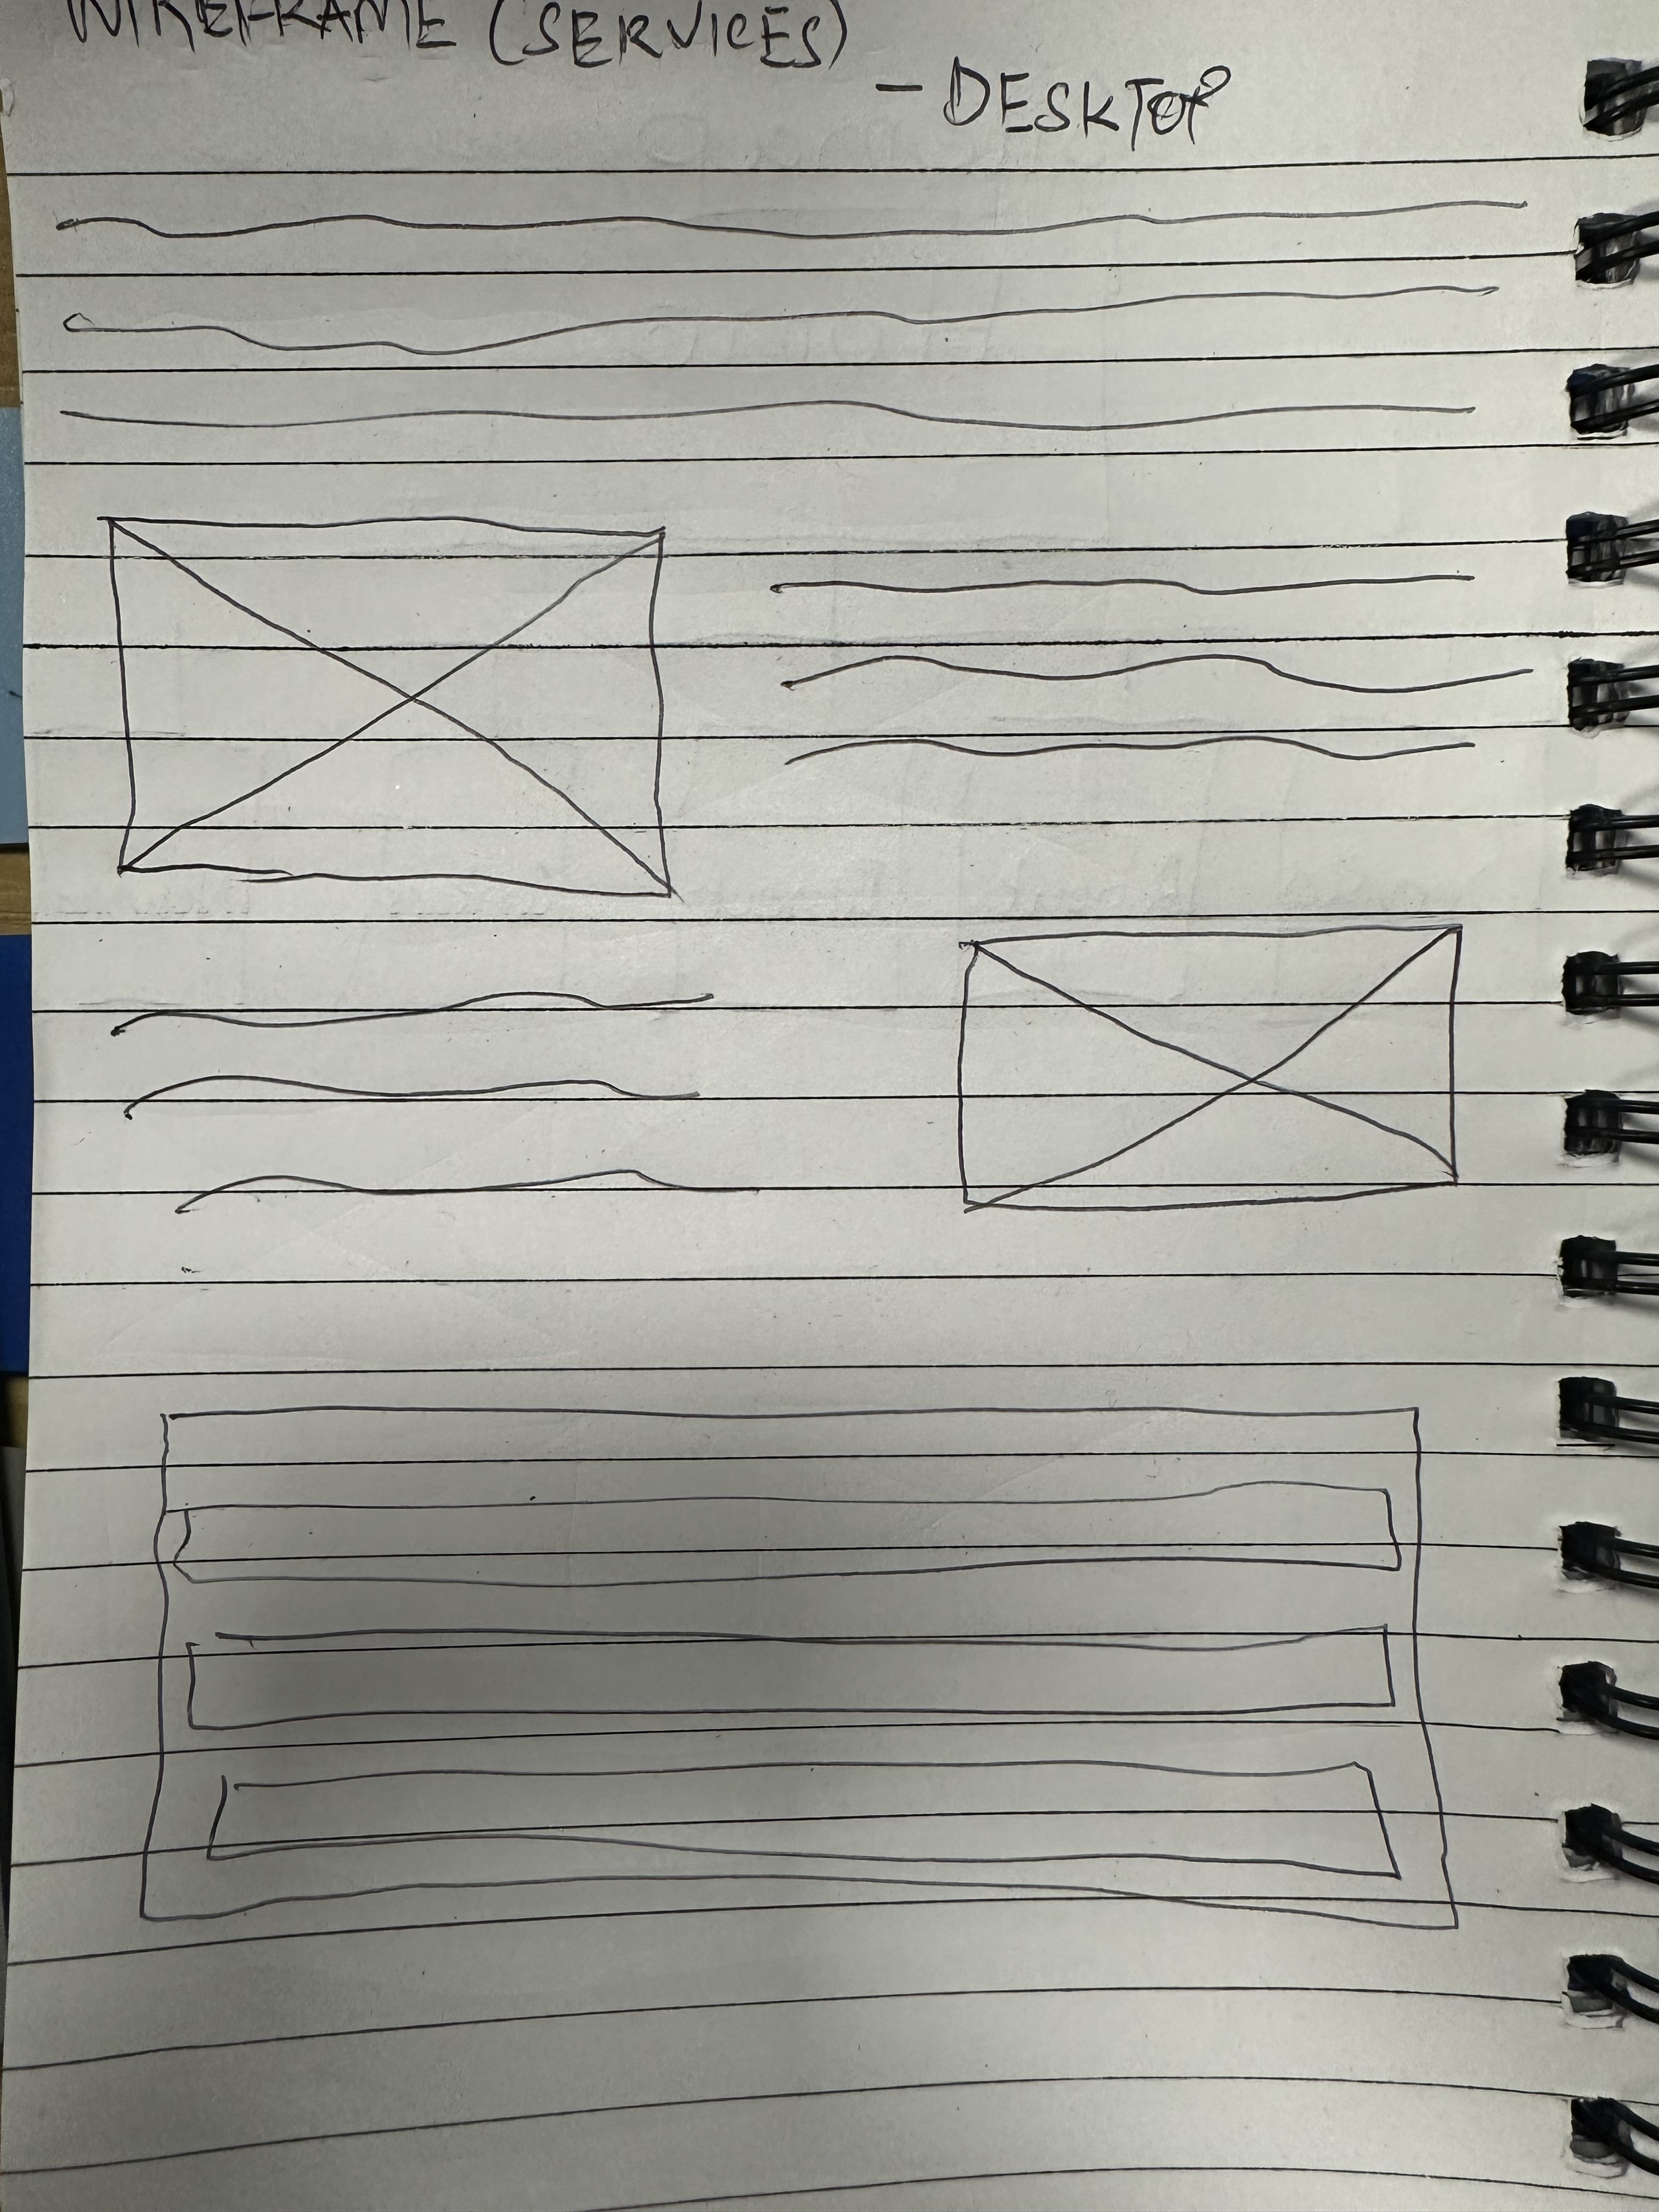 WIREFRAME (SERVICES)
- DESKTOP